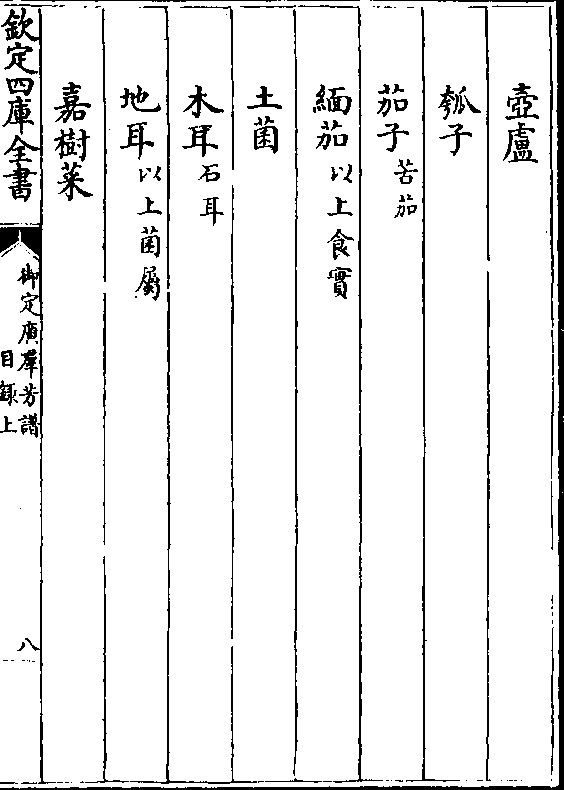 壺盧
瓠子
茄子苦茄
緬茄以上食實
土菌
木耳石耳
地耳以上菌屬
嘉樹菜
欽定四庫全書
御定廣羣芳譜
目錄上
八